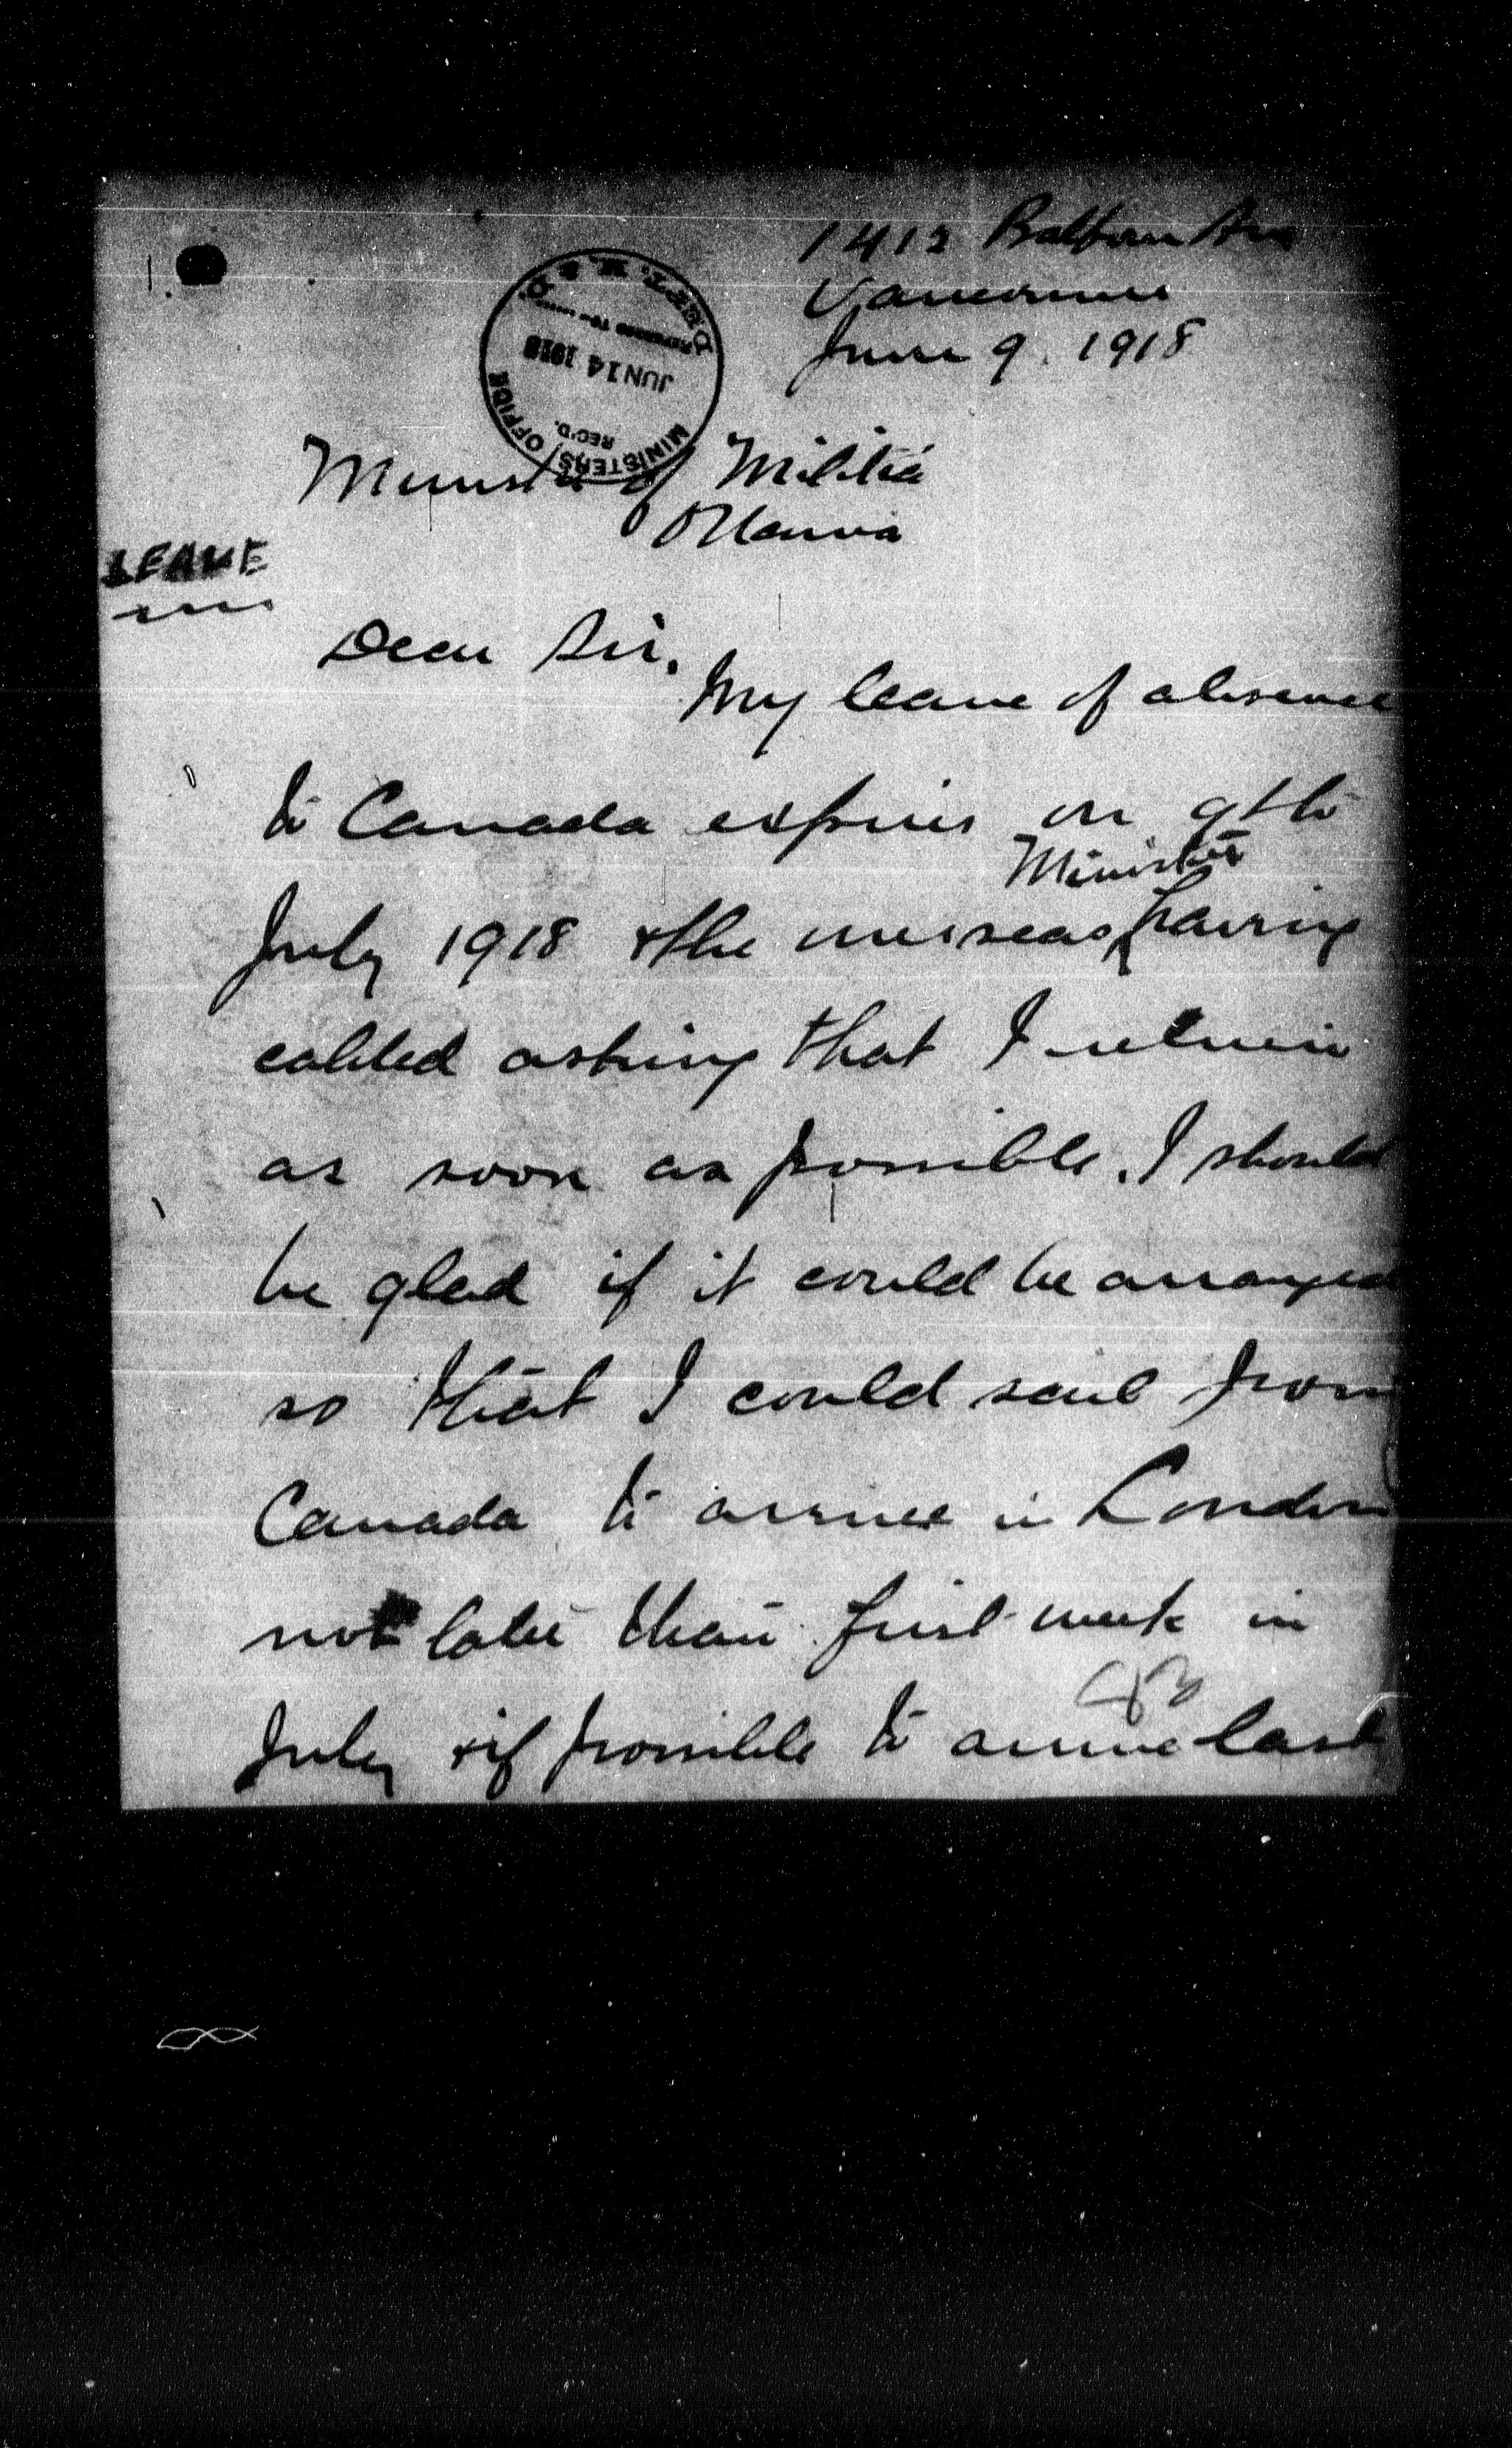 1412 Balfour Ave
Vancouver
June 9. 1918
DEPT. M. & D.
REFERRED TO
JUN 14 1918
REC'D.
MINISTERS OFFICE
Minister of Militia
Ottawa
LEAVE
Dear Sir,
My leave of absence
to Canada expires on 9th
Minister
July 1918 & the overseas having
cabled asking that I return
as soon as possible. I should
be glad if it could be arranged
so that I could sail from
Canada to arrive in London
not later than first week in
July & if possible to arrive last